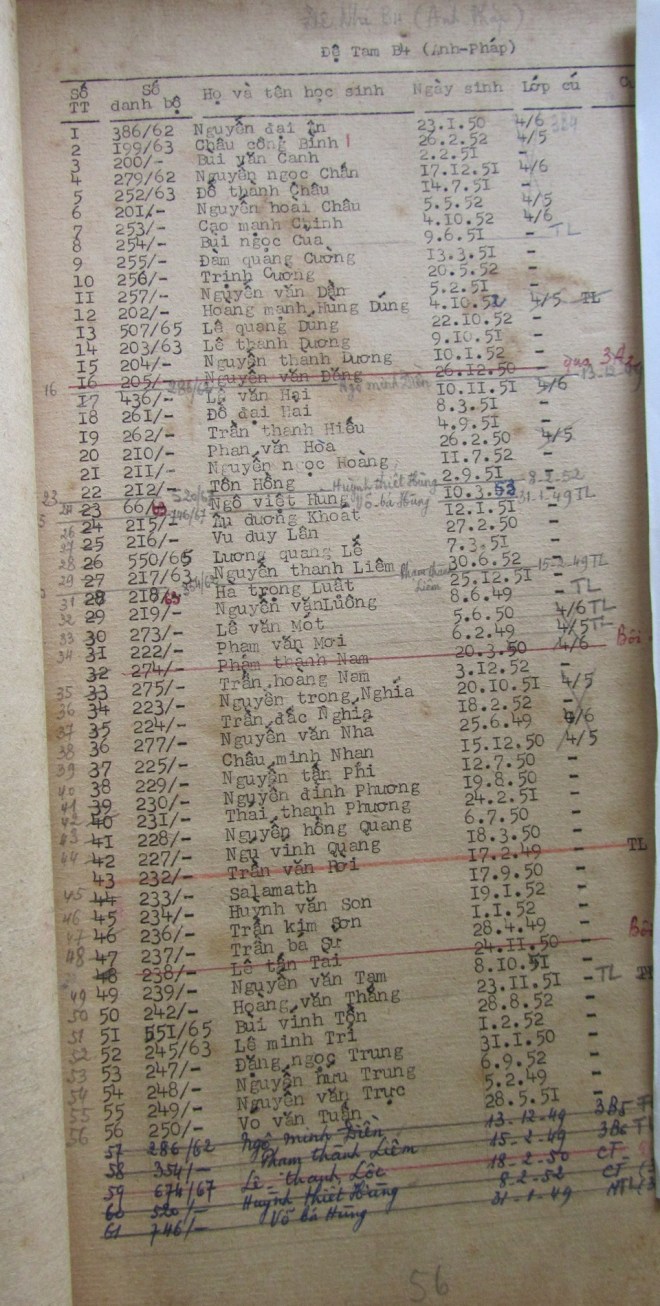 Đệ Nhị B4 (Anh Pháp)
Đệ Tam B4 (Anh-Pháp)
Số TT Số danh bộ Họ và tên học sinh Ngày sinh Lớp cũ
I 386/62 Nguyễn đại Ân 23.I.50 4/6
2 I99/63 Châu công Bình 26.2.52 4/5
3 200/- Bùi văn Cảnh 2.2.5I -
4 279/62 Nguyễn ngọc Chấn I7.I2.5I 4/6
5 252/63 Đỗ thành Châu I4.7.5I -
6 20I/- Nguyễn hoài Châu 5.5.52 4/5
7 253/- Cao mạnh Chinh 4.I0.52 4/6
8 254/- Bùi ngọc Của 9.6.5I - TL
9 255/- Đàm quang Cường I3.3.5I -
10 256/- Trịnh Cường 20.5.52 -
II 257/- Nguyễn văn Dần 5.2.5I -
12 202/- Hoàng mạnh Hùng Dũng 4.I0.52 4/5 TL
I3 507/65 Lê quang Dũng 22.I0.52 -
14 203/63 Lê thành Dương 9.I0.5I -
I5 204/- Nguyễn thanh Dương I0.I.52 -
16 I6 205/- 286/62 Nguyễn văn Đăng Ngô minh Điền 26.I2.50 - qua 3A2
I7 436/- Lê văn Hai I0.II.5I 4/6
I8 26I/- Đỗ đại Hải 8.3.5I -
I9 262/- Trần thanh Hiếu 4.9.5I -
20 2I0/- Phan văn Hòa 26.2.50 4/5
2I 2II/- Nguyễn ngọc Hoàng II.7.52 -
22 2I2/- Tôn Hồng Huỳnh thiết Hùng 2.9.5I - 8-2-52
23 66/63 Ngô việt Hùng Võ bá Hùng I0.3.53 - 31-1-49 TL
24 2I5/- Âu dương Khoát I2.I.5I -
25 2I6/- Vũ duy Lân 27.2.50 -
26 550/65 Lương quang Lễ 7.3.5I -
27 2I7/63 Nguyễn thanh Liêm Phạm thanh Liêm 30.6.52 - 15-2-49 TL
28 2I8/63 Hà trọng Luật 25.I2.5I -
29 2I9/- Nguyễn vănLương 8.6.49 - TL
30 273/- Lê văn Một 5.6.50 4/6 TL
31 222/- Phạm văn Mới 6.2.49 4/5 TL
32 274/- Phạm thành Nam 20.3.50 4/6
33 275/- Trần hoàng Nam 3.I2.52 -
34 223/- Nguyễn trọng Nghĩa 20.I0.5I 4/5
35 224/- Trần đắc Nghĩa I8.2.52 -
36 277/- Nguyễn văn Nhã 25.6.49 4/6
37 225/- Châu minh Nhan I5.I2.50 4/5
38 229/- Nguyễn tấn Phi I2.7.50 -
39 230/- Nguyễn đình Phương I9.8.50 -
40 23I/- Thái thanh Phương 24.2.5I -
4I 228/- Nguyễn hồng Quang 6.7.50 -
42 227/- Ngụ vinh Quang I8.3.50 -
43 232/- Trần văn Rời I7.2.49 - TL
44 233/- Salamath I7.9.50 -
45 234/- Huỳnh văn Sơn I9.I.52 -
46 236/- Trần kim Sơn I.I.52 -
47 237/- Trần bá Sự 28.4.49 -
48 238/- Lê tấn Tài 24.II.50 -
49 239/- Nguyễn văn Tạm 8.I0.5I -
50 242/- Hoàng văn Thắng 23.II.5I - TL
5I 55I/65 Bùi vinh Tôn 28.8.52 -
52 245/63 Lê minh Trí I.2.52 -
53 247/- Đặng ngọc Trung 3I.I.50 -
54 248/- Nguyễn hữu Trung 6.9.52 -
55 249/- Nguyễn văn Trực 5.2.49 -
56 250/- Võ văn Tuấn 28.5.5I -
57 286/62 Ngô minh Điền 13-12-49 3B5
58 354/- Phạm thanh Liêm 15-2-49 3B6
59 674/67 Lê thanh Lộc 18-2-50 CT
60 520/- Huỳnh thiết Hùng 8-2-52 CT
61 746/- Võ bá Hùng 31-1-49 NTL
56